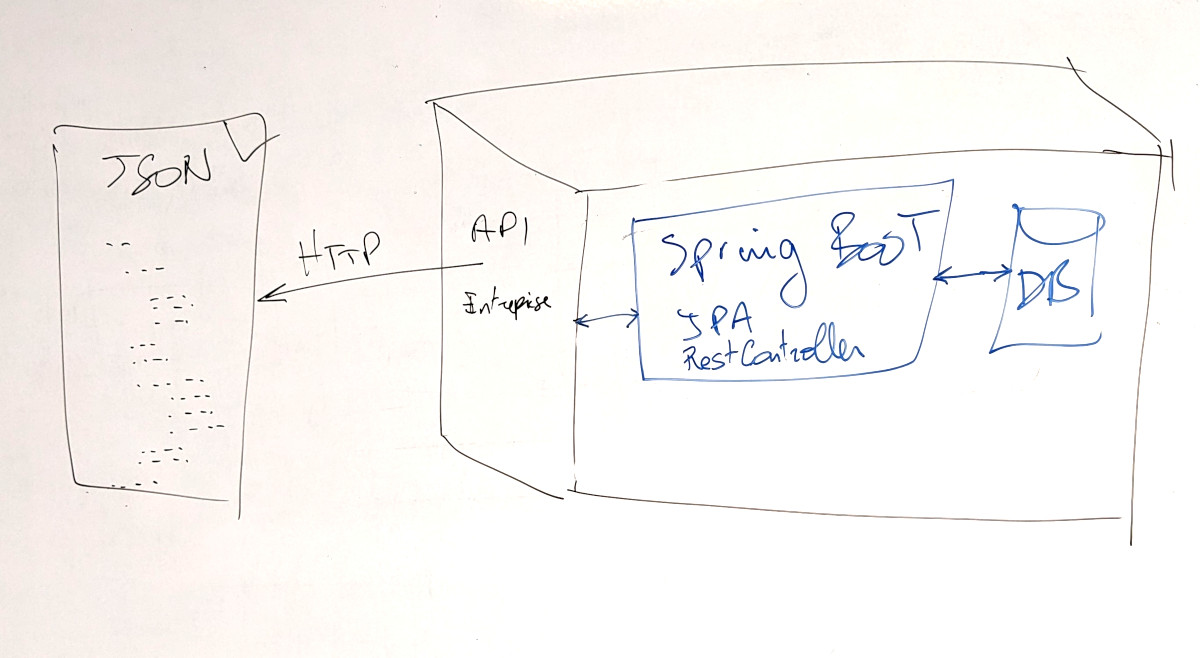 JSON
HTTP
API
Entreprise
Spring BooT
JPA
RestController
DB